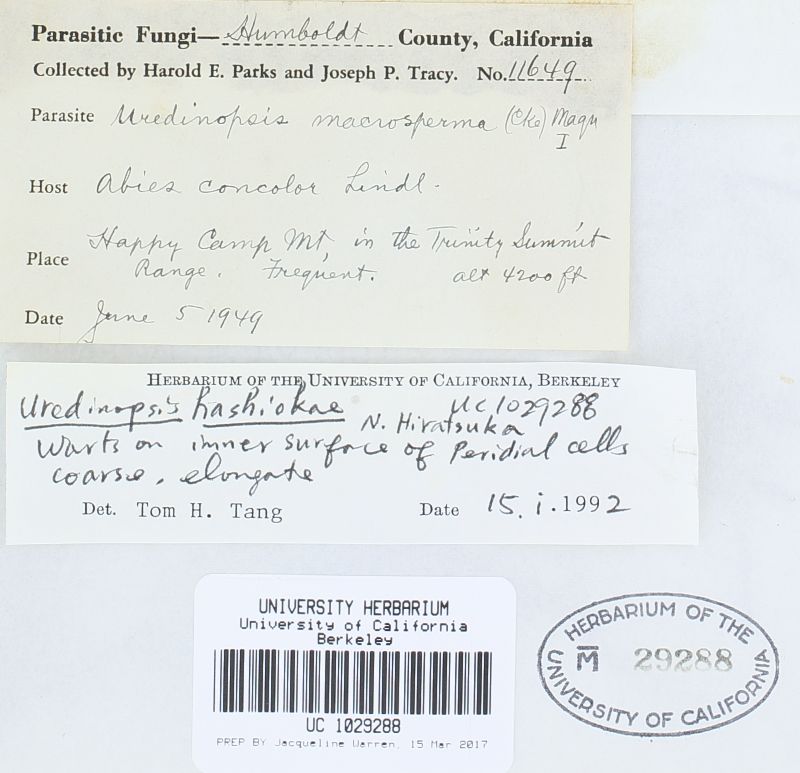 Parasitic Fungi—Humboldt County, California
Collected by Harold E. Parks and Joseph P. Tracy. No. 11649
Parasite Uredinopsis macrosperma (Cke) Magn
I
Host Abies concolor Lindl.
Place Happy Camp Mt. in the Trinity Summit
Range. Frequent. alt 4200 ft
Date June 5 1949
HERBARIUM OF THE UNIVERSITY OF CALIFORNIA, BERKELEY
UC1029288
Uredinopsis hashiokae N. Hiratsuka
Warts on inner surface of peridial cells
coarse, elongate
Det. Tom H. Tang Date 15. i. 1992
UNIVERSITY HERBARIUM
University of California
Berkeley
UC 1029288
PREP BY Jacqueline Warren, 15 Mar 2017
HERBARIUM OF THE
M 29288
UNIVERSITY OF CALIFORNIA